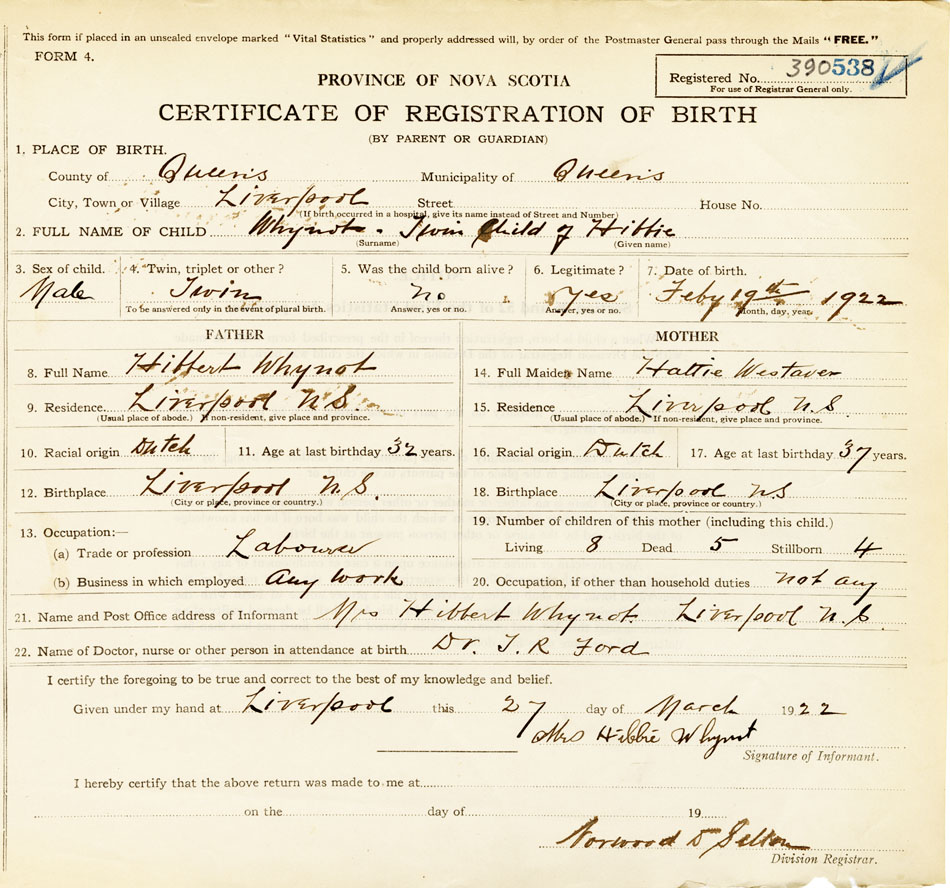 This form if placed in an unsealed envelope marked "Vital Statistics" and properly addressed will, by order of the Postmaster General pass through the Mails "FREE."
FORM 4.
Registered No. 390538
For use of Registrar General only.
PROVINCE OF NOVA SCOTIA
CERTIFICATE OF REGISTRATION OF BIRTH
(BY PARENT OR GUARDIAN)
1. PLACE OF BIRTH.
County of Queens Municipality of Queens
City, Town or Village Liverpool Street House No.
(If birth occurred in a hospital, give its name instead of Street and Number)
2. FULL NAME OF CHILD Whynot - Twin Child of Hibbie
(Surname) (Given name)
3. Sex of child. 4. Twin, triplet or other? 5. Was the child born alive? 6. Legitimate? 7. Date of birth.
Male Twin no yes Feby 19th 1922
To be answered only in the event of plural birth. Answer, yes or no. Answer, yes or no. Month, day, year.
FATHER MOTHER
8. Full Name Hibbert Whynot 14. Full Maiden Name Hattie Westaver
9. Residence Liverpool N.S. 15. Residence Liverpool N.S.
(Usual place of abode.) If non-resident, give place and province. (Usual place of abode.) If non-resident, give place and province.
10. Racial origin Dutch 11. Age at last birthday 32 years. 16. Racial origin Dutch 17. Age at last birthday 37 years.
12. Birthplace Liverpool N.S. 18. Birthplace Liverpool NS
(City or place, province or country.) (City or place, province or country.)
13. Occupation:— 19. Number of children of this mother (including this child.)
(a) Trade or profession Labourer Living 8 Dead 5 Stillborn 4
(b) Business in which employed Any work 20. Occupation, if other than household duties not any
21. Name and Post Office address of Informant Mrs Hibbert Whynot Liverpool N.S.
22. Name of Doctor, nurse or other person in attendance at birth Dr. J. R Ford
I certify the foregoing to be true and correct to the best of my knowledge and belief.
Given under my hand at Liverpool this 27 day of March 1922
Mrs Hibbie Whynot
Signature of Informant.
I hereby certify that the above return was made to me at
on the day of 19
Norwood D
Division Registrar.